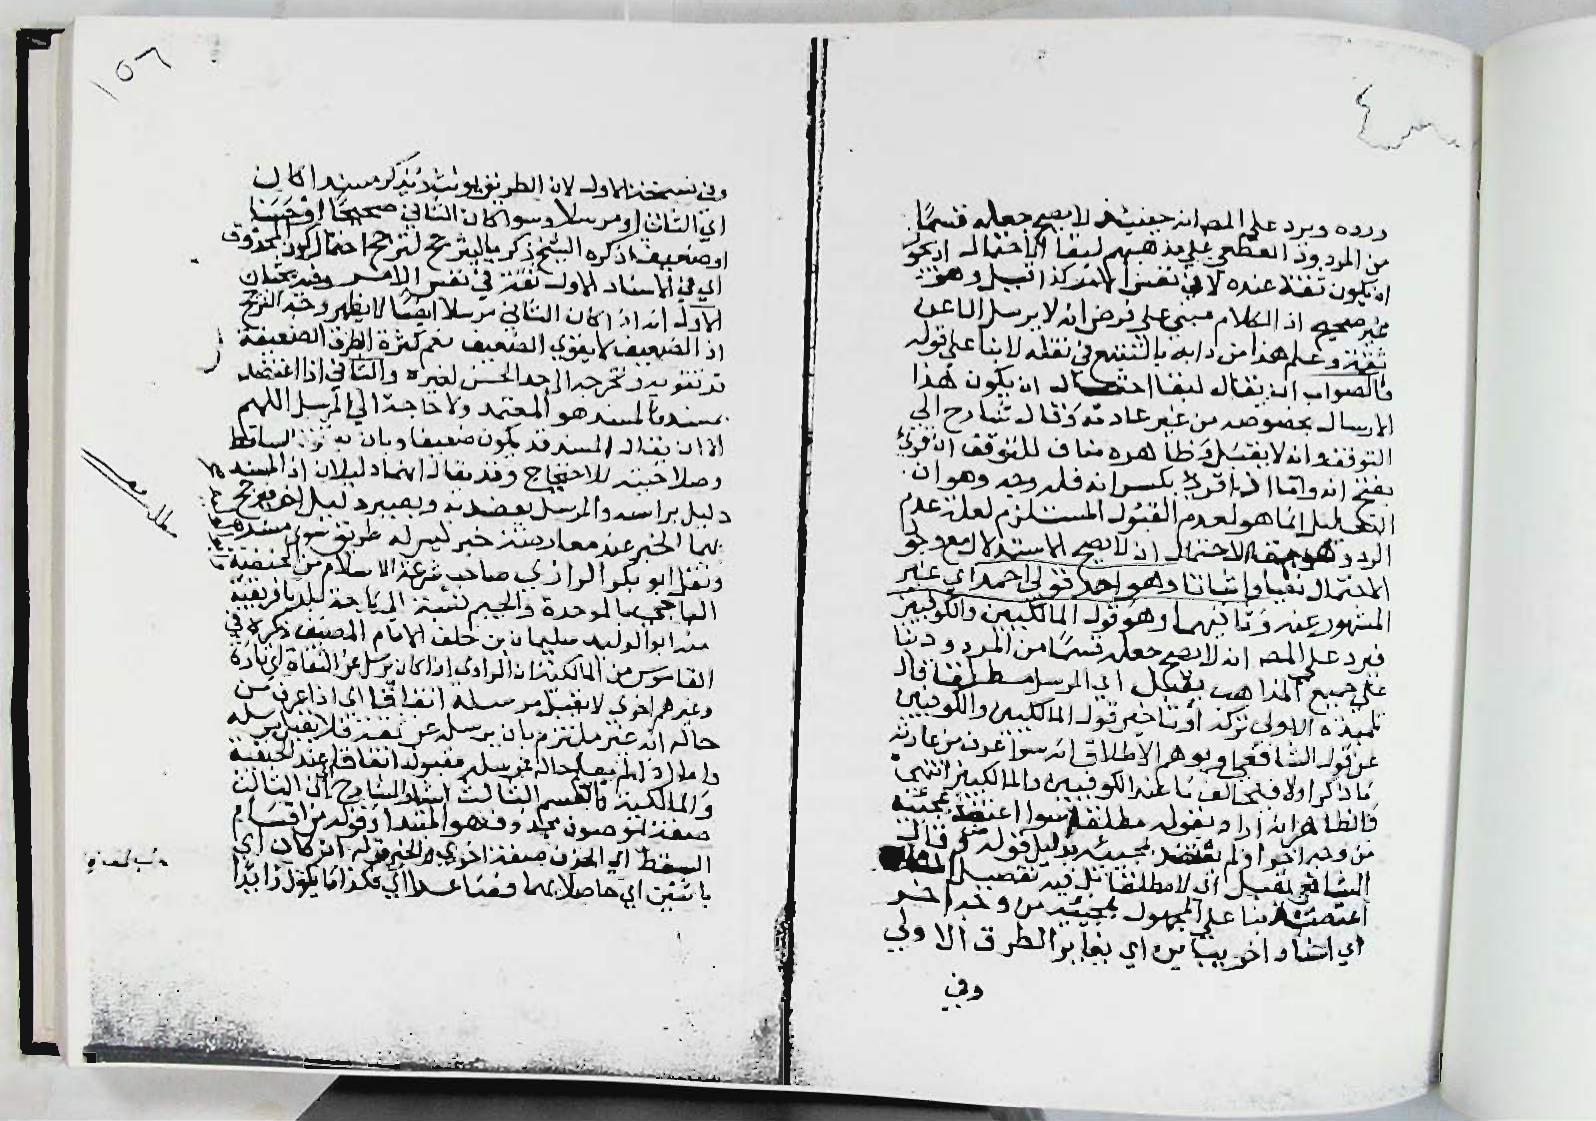 ورده ويرد على المصـ انه حينئذ لا يصح جعله قسما
من المردود القطعي على مذهبهم لبقا الاحتمال اذ يجوز
ان يكون ثقة عنده لا في نفس الامر كذا قيل وهو
غير صحيح اذ الكلام مبني على فرض انه لا يرسل الا عن
ثقة وعلم هذا من دابه بالتتبع في نقله لا بنا على قوله
فالصواب ان يقال لبقا احتمال ان يكون هذا
الارسال بخصوصه من غير عادته وقال شارح اي
التوقف وانه لا يقبل وظاهره مناف للتوقف ان قرئ
بفتح انه واما اذا قرئ بكسر انه فله وجه وهو ان
التعليل انما هو لعدم القبول المستلزم لعلة عدم
الرد وهو بقا الاحتمال اذ لا يصح الاستدلال مع وجود
الاحتمال نفيا واثباتا وهو احد قولي احمد اي غير
المشهور عنه وثانيهما وهو قول المالكيين والكوفيين
فيرد على المصـ انه لا يصح جعله قسما من المردود بنا
على جميع المذاهب يقبل اي المرسل مطلقا قال
تلميذه الاولى تركه او تاخير قول المالكيين والكوفيين
عن قول الشافعي ويوهم الاطلاق انه سوا عرف من عادته
ما ذكر او لا فيخالف ما عند الكوفيين والمالكيين انتهى
فالظاهر انه اراد بقوله مطلقا سوا اعتضد بمجيئه
من وجه اخر او لم يعتضد بمجيئه بدليل قوله وقال
الشافعي يقبل اي لا مطلقا بل فيه تفصيل
اعتضد بنا على المجهول بمجيئه من وجه اخر
اي اسناد اخر يباين اي يغاير الطرق الاولى
وفي
١٥٦
وفي نسخة الاول لان الطريق يونث ويذكر مسندا كان
اي الثاني او مرسلا وسوا كان الثاني صحيحا او حسنا
او ضعيفا ذكره الشيخ زكريا ليترجح احتمال كون المحذوف
اي في الاسناد الاول ثقة في نفس الامر وفيه بحثان
الاول انه اذا كان الثاني مرسلا ايضا لا يظهر وجه الترجيح
اذ الضعيف لا يقوي الضعيف نعم كثرة الطرق الضعيفة
قد تقويه وتخرجه الى حد الحسن لغيره والثاني اذا اعتضد
بمسند فالمسند هو المعتمد ولا حاجة الى المرسل اللهم
الا ان يقال المسند قد يكون ضعيفا وبان به قوة الساقط
وصلاحيته للاحتجاج وقد يقال انهما دليلان اذ المسند
دليل براسه والمرسل يعتضد به ويصير دليلا اخر فيرجح
بهما الخبر عند معارضة خبر ليس له طريق سوى مسند
ونقل ابو بكر الرازي صاحب شرعة الاسلام من الحنفية
الباجي بالموحدة والجيم نسبة الى باجة بلد بافريقية
منه ابو الوليد سليمان بن خلف الامام المصنف ذكره في
القاموس من المالكية ان الراوي اذا كان يرسل عن الثقات اي تارة
وغيرهم اخرى لا يقبل مرسله اتفاقا اي اذا عرف من
حاله انه غير ملتزم بان يرسله عن ثقة فلا يقبل مرسله
واما اذا لم يعلم حاله فمرسله مقبول اتفاقا عند الحنفية
والمالكية فالقسم الثالث اشار الشارح الى ان الثالث
صفة لموصوف محذوف هو المبتدا وقوله من اقسام
السقط اي الحذف صفة اخرى والخبر قوله ان كان اي
باثنين اي حاصلا بهما فصاعدا اي فكذا ما يكون زايدا
مطلب معضل